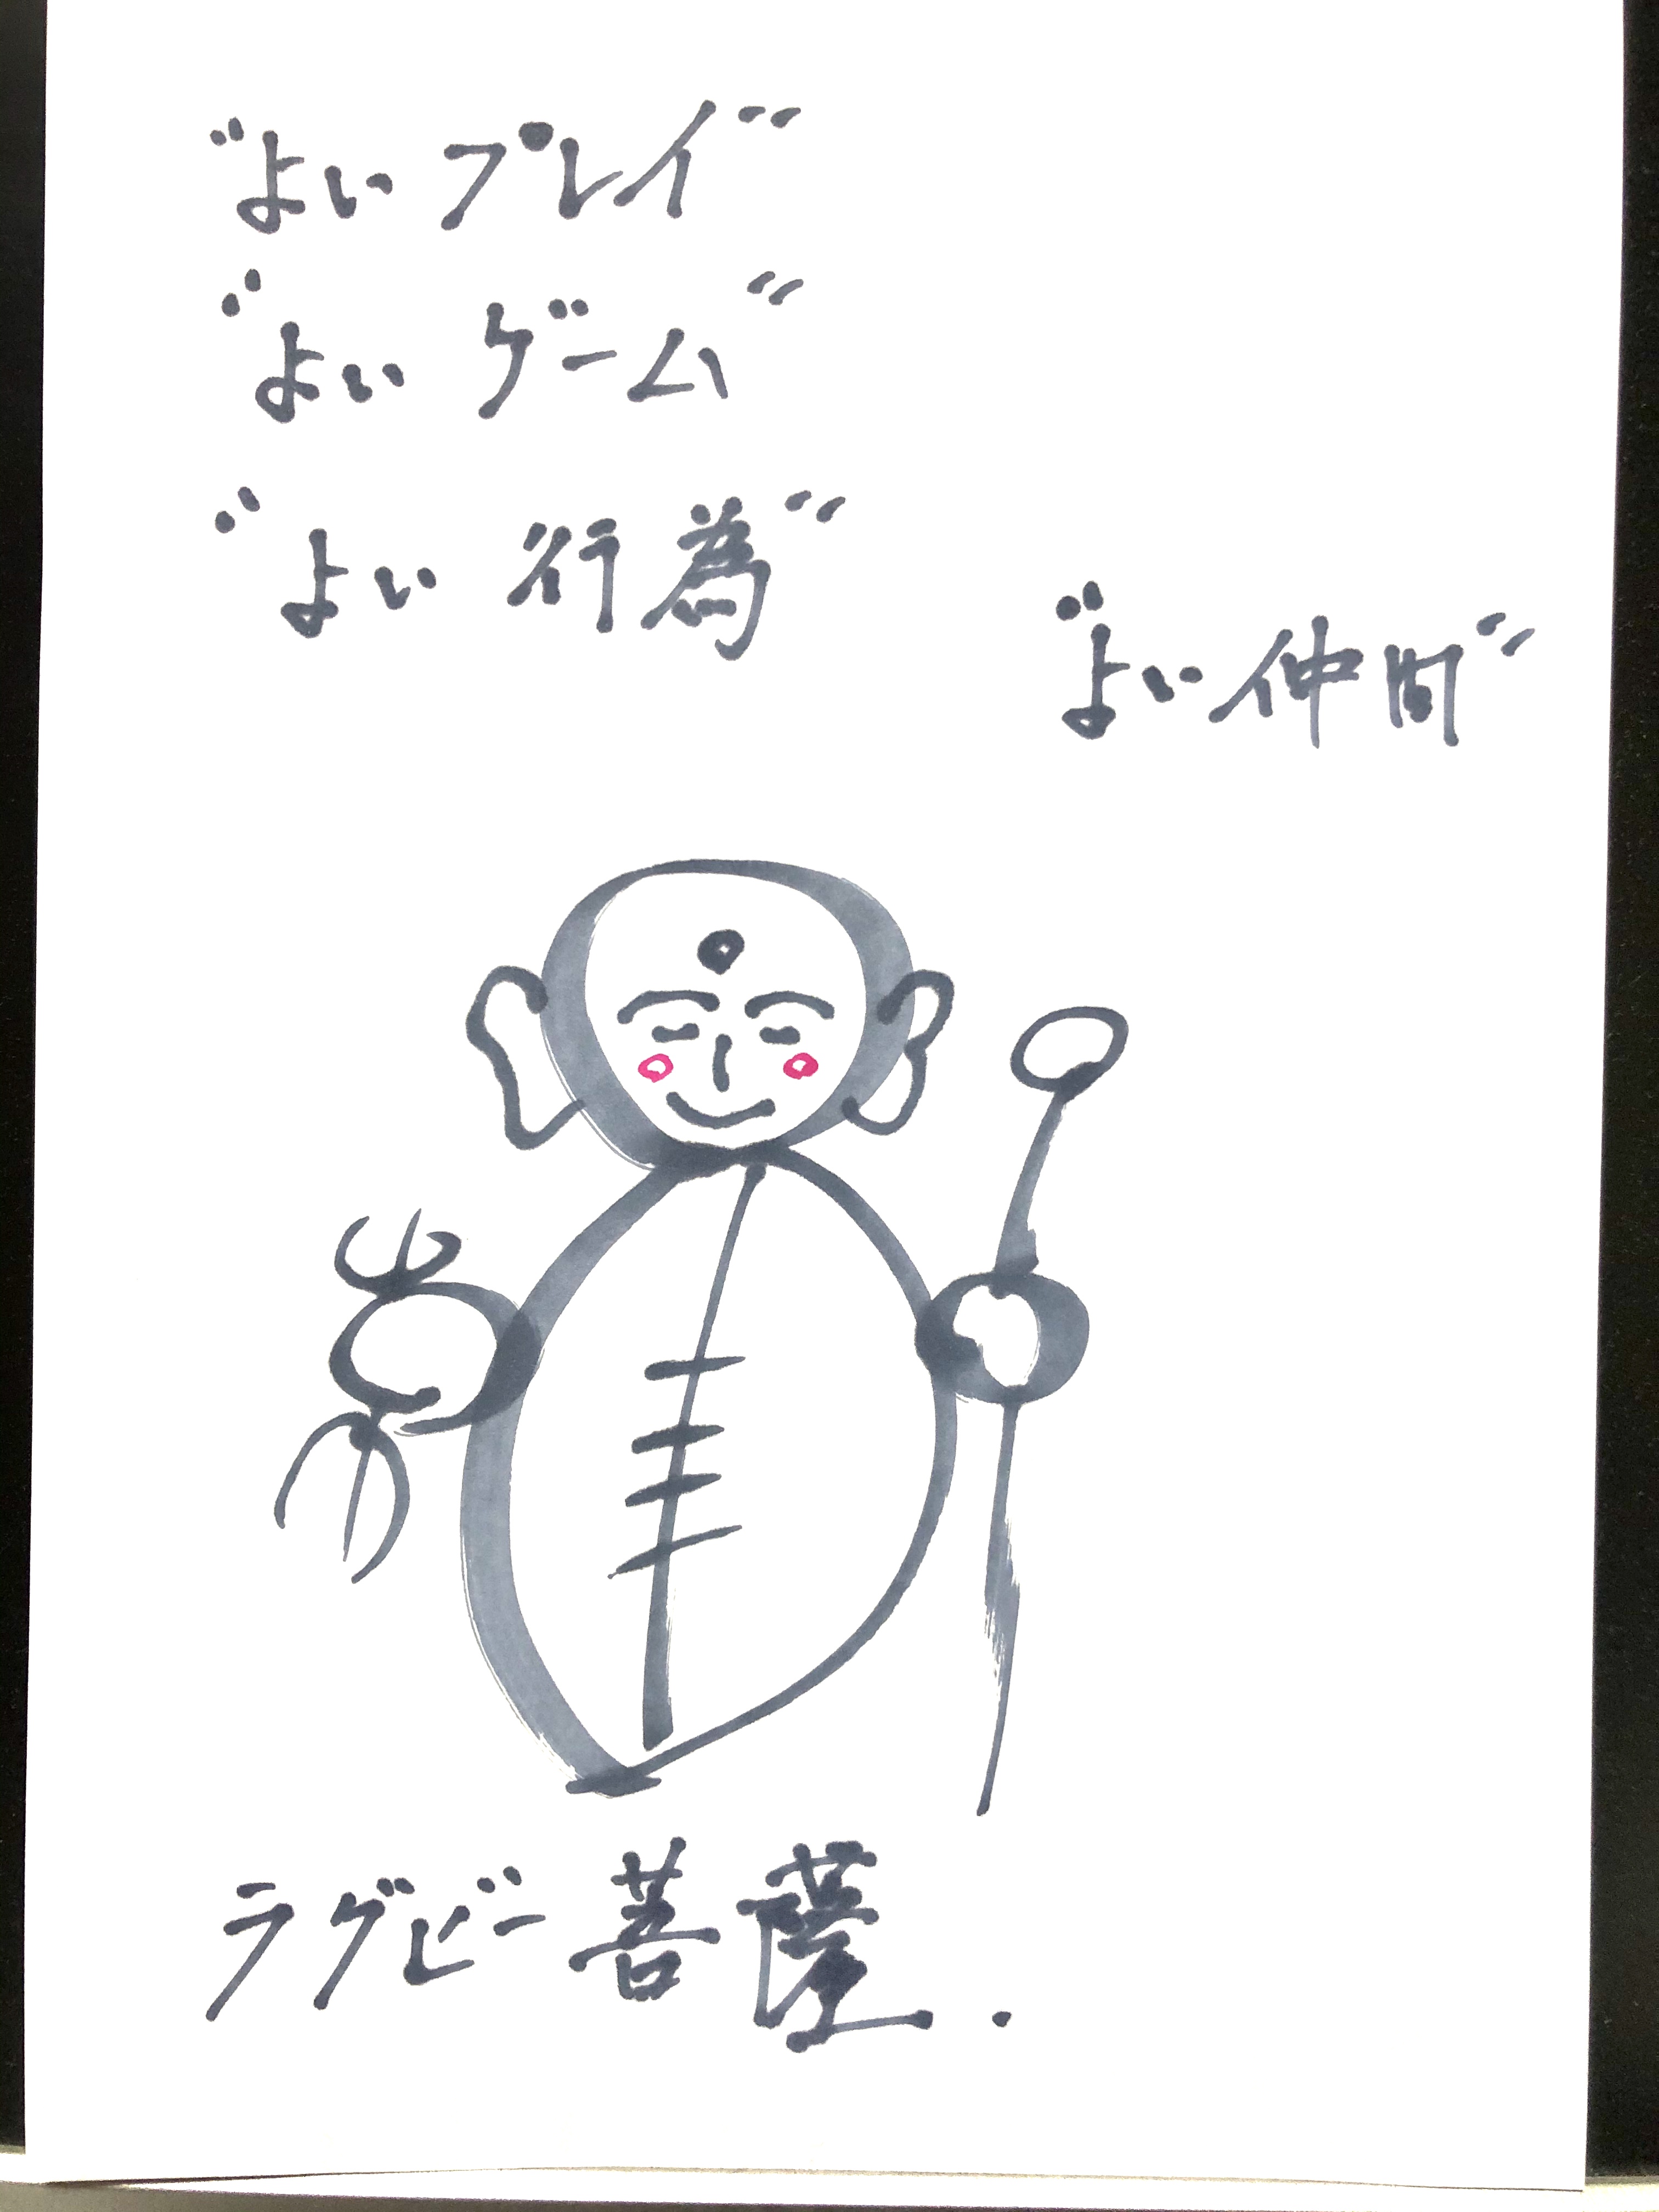 "よい プレイ"
"よい ゲーム"
"よい 行為"
"よい仲間"
ラグビー菩薩.